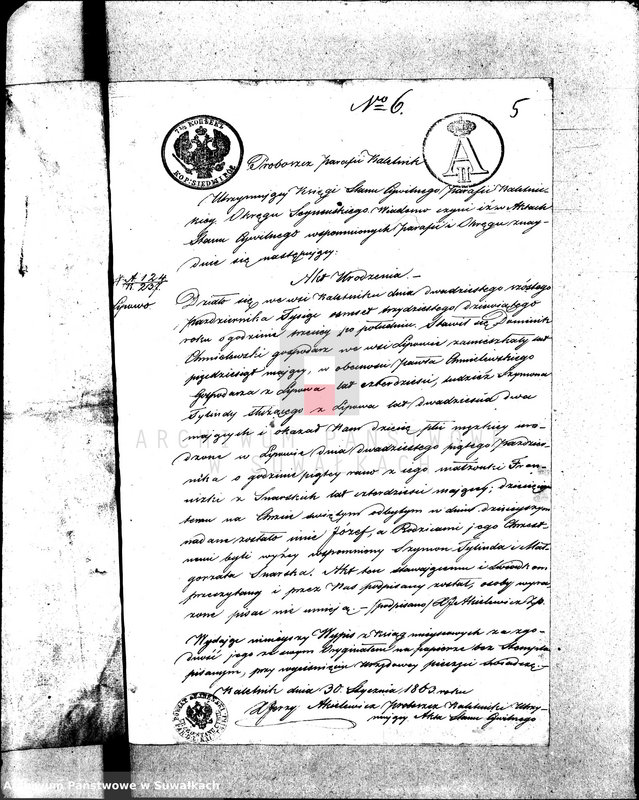 Nro 6.
5
7½ KOPIEEK
KOP: SIEDM I PÓŁ
A II
Proboszcz parafii Kaletnik
Utrzymujący Księgi Stanu Cywilnego parafii Kaletnic-
kiej Okręgu Sejneńskiego. Wiadomo czyni iż w Aktach
Stanu Cywilnego wspomnionych parafii i Okręgu znaj-
duje się następujący:
Akt Urodzenia. -
N A 124
Lipowo
Działo się we wsi Kaletniku dnia dwudziestego szóstego
Października Tysiąc osmset trzydziestego dziewiątego
roku o godzinie trzeciej po południu. Stawił się Dominik
Chmielewski gospodarz we wsi Lipowie zamieszkały lat
pięćdziesiąt mający, w obecności Pawła Chmielewskiego
Gospodarza z Lipowa lat czterdzieści, tudzież Szymona
Tylindy służącego z Lipowa lat dwadzieścia dwa
mających i okazał Nam dziecię płci męzkiej uro-
dzone w Lipowie dnia dwudziestego piątego Paździer-
nika o godzinie piątej rano z jego małżonki Fran-
ciszki z Snarskich lat czterdzieści mającej; dziecięciu
temu na Chrzcie świętym odbytym w dniu dzisiejszym
nadane zostało imie Józef, a Rodzicami jego Chrzest-
nemi byli wyżej wspomniony Szymon Tylinda i Mał-
gorzata Snarska. Akt ten stawającemu i świadkom
przeczytany i przez Nas podpisany został, osoby wyra-
żone pisać nie umieją - (podpisano) X. J. Akielewicz
Wydając niniejszy Wypis z ksiąg miejscowych za zgo-
dność jego z samym Oryginałem na papierze bez Stempla
pisanym, przy wyciśnięciu urzędowej pieczęci świadczę. -
Kaletnik dnia 30 Stycznia 1863 roku
X Jerzy Akielewicz Proboszcz Kaletnika Utrzy-
mujący Akta Stanu Cywilnego
ARCHIWUM PAŃSTWOWE
W SUWAŁKACH
Archiwum Państwowe w Suwałkach